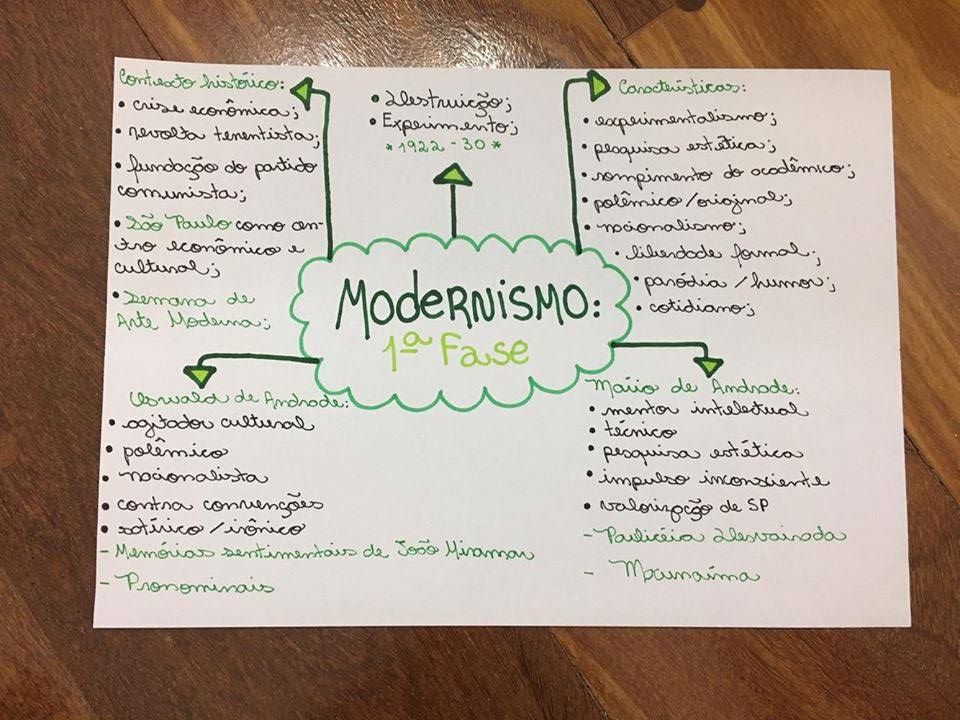 Contexto histórico:
• crise econômica;
• revolta tenentista;
• fundação do partido
comunista;
• São Paulo como cen-
tro econômico e
cultural;
• Semana de
Arte Moderna;
• Destruição;
• Experimento;
*1922-30*
Características:
• experimentalismo;
• pesquisa estética;
• rompimento do acadêmico;
• polêmico/original;
• nacionalismo;
• liberdade formal;
• paródia/humor;
• cotidiano;
MODERNISMO:
1ª Fase
Oswald de Andrade:
• agitador cultural
• polêmico
• nacionalista
• contra convenções
• satírico/irônico
- Memórias sentimentais de João Miramar
- Pronominais
Mário de Andrade:
• mentor intelectual
• técnico
• pesquisa estética
• impulso inconsciente
• valorização de SP
- Paulicéia Desvairada
- Macunaíma